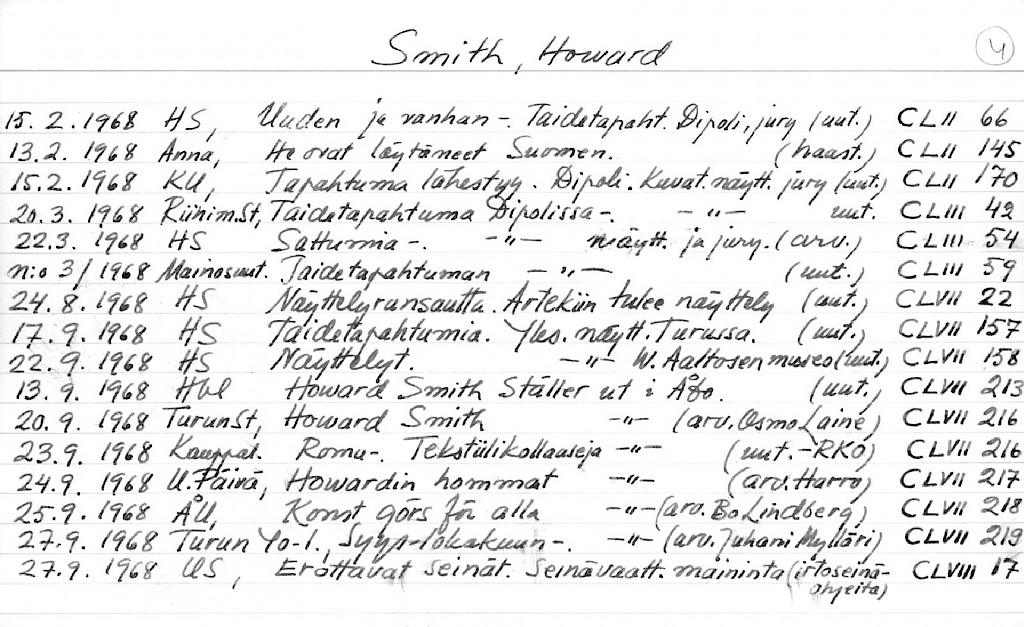 Smith, Howard
4
15. 2. 1968 HS, Uuden ja vanhan-. Taidetapaht. Dipoli, jury (uut.) CLII 66
13.2. 1968 Anna, He ovat löytäneet Suomen. (haast.) CLII 145
15.2. 1968 KU, Tapahtuma lähestyy. Dipoli. Kuvat. näytt. jury (uut.) CLII 170
20.3. 1968 Riihim.St, Taidetapahtuma Dipolissa-. -"- uut. CLIII 42
22.3. 1968 HS Sattumia-. -"- näytt. ja jury. (arv.) CLIII 54
n:o 3/1968 Mainosuut. Taidetapahtuman -"- (uut.) CLIII 59
24.8. 1968 HS Näyttelyrunsautta. Artekiin tulee näyttely (uut.) CLVII 22
17.9. 1968 HS Taidetapahtumia. Yks. näytt. Turussa. (uut.) CLVII 157
22.9. 1968 HS Näyttelyt. -"- W. Aaltosen museo (uut.) CLVII 158
13.9. 1968 Hbl Howard Smith Ställer ut i Åbo. (uut.) CLVII 213
20.9. 1968 TurunSt, Howard Smith -"- (arv. Osmo Laine) CLVII 216
23.9. 1968 Kauppal. Romu-. Tekstiilikollaaseja -"- (uut.-RKO) CLVII 216
24.9. 1968 U.Päivä, Howardin hommat -"- (arv. Harro) CLVII 217
25.9. 1968 ÅU, Konst görs för alla -"- (arv. Bo Lindberg) CLVII 218
27.9. 1968 Turun Yo-l., Syys-lokakuun-. -"- (arv. Juhani Mylläri) CLVII 219
27.9. 1968 US, Erottavat seinät. Seinävaatt. maininta (irtoseinä-
ohjeita) CLVIII 17